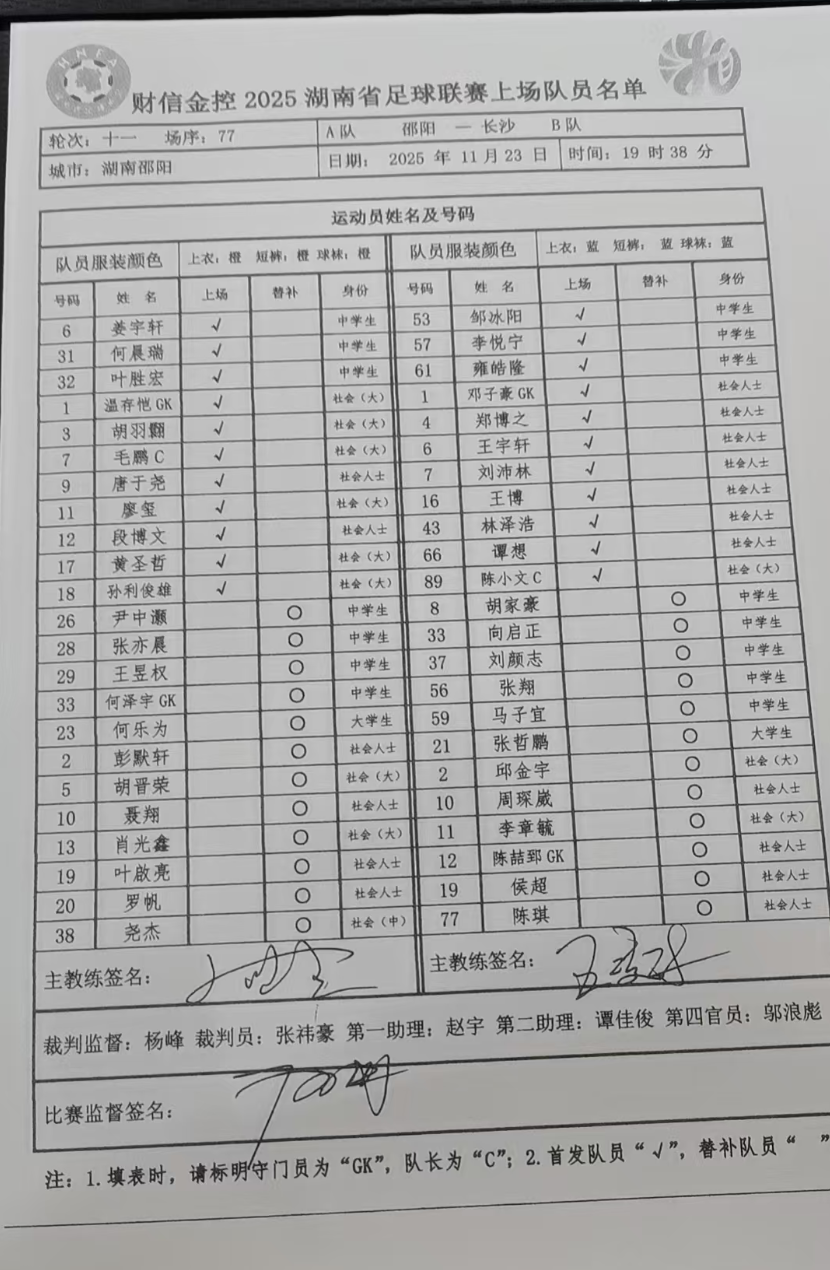 HNFA
财信金控 2025 湖南省足球联赛上场队员名单
轮次：十一 场序：77 A 队 邵阳 — 长沙 B 队
城市：湖南邵阳 日期： 2025 年 11 月 23 日 时间：19 时 38 分
运动员姓名及号码
队员服装颜色 上衣：橙 短裤：橙 球袜：橙 队员服装颜色 上衣：蓝 短裤： 蓝 球袜：蓝
号码 姓 名 上场 替补 身份 号码 姓 名 上场 替补 身份
6 姜宇轩 √ 中学生 53 邹冰阳 √ 中学生
31 何晨瑞 √ 中学生 57 李悦宁 √ 中学生
32 叶胜宏 √ 中学生 61 雍皓隆 √ 中学生
1 温存恺 GK √ 社会（大） 1 邓子豪 GK √ 社会人士
3 胡羽翾 √ 社会（大） 4 郑博之 √ 社会人士
7 毛鹏 C √ 社会（大） 6 王宇轩 √ 社会人士
9 唐于尧 √ 社会人士 7 刘沛林 √ 社会人士
11 廖玺 √ 社会（大） 16 王博 √ 社会人士
12 段博文 √ 社会人士 43 林泽浩 √ 社会人士
17 黄圣哲 √ 社会（大） 66 谭想 √ 社会人士
18 孙利俊雄 √ 社会（大） 89 陈小文 C √ 社会（大）
26 尹中灏 ○ 中学生 8 胡家豪 ○ 中学生
28 张亦晨 ○ 中学生 33 向启正 ○ 中学生
29 王昱权 ○ 中学生 37 刘颜志 ○ 中学生
33 何泽宇 GK ○ 中学生 56 张翔 ○ 中学生
23 何乐为 ○ 大学生 59 马子宜 ○ 中学生
2 彭默轩 ○ 社会人士 21 张哲鹏 ○ 大学生
5 胡晋荣 ○ 社会（大） 2 邱金宇 ○ 社会（大）
10 聂翔 ○ 社会人士 10 周琛崴 ○ 社会人士
13 肖光鑫 ○ 社会（大） 11 李章毓 ○ 社会（大）
19 叶啟亮 ○ 社会人士 12 陈喆郅 GK ○ 社会人士
20 罗帆 ○ 社会人士 19 侯超 ○ 社会人士
38 尧杰 ○ 社会（中） 77 陈琪 ○ 社会人士
主教练签名： 主教练签名：
裁判监督：杨峰 裁判员：张祎豪 第一助理：赵宇 第二助理：谭佳俊 第四官员：邬浪彪
比赛监督签名：
注：1.填表时，请标明守门员为“GK”，队长为“C”；2.首发队员“√”，替补队员“ ”